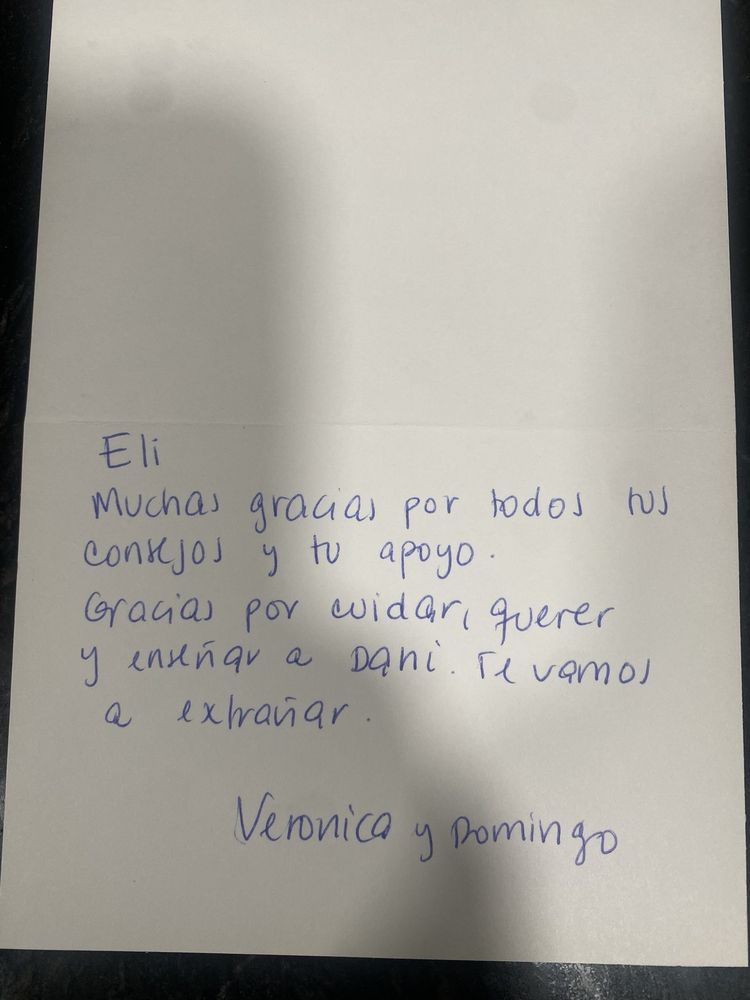 Eli
Muchas gracias por todos tus
consejos y tu apoyo.
Gracias por cuidar, querer
y enseñar a Dani. Te vamos
a extrañar.
Veronica y Domingo